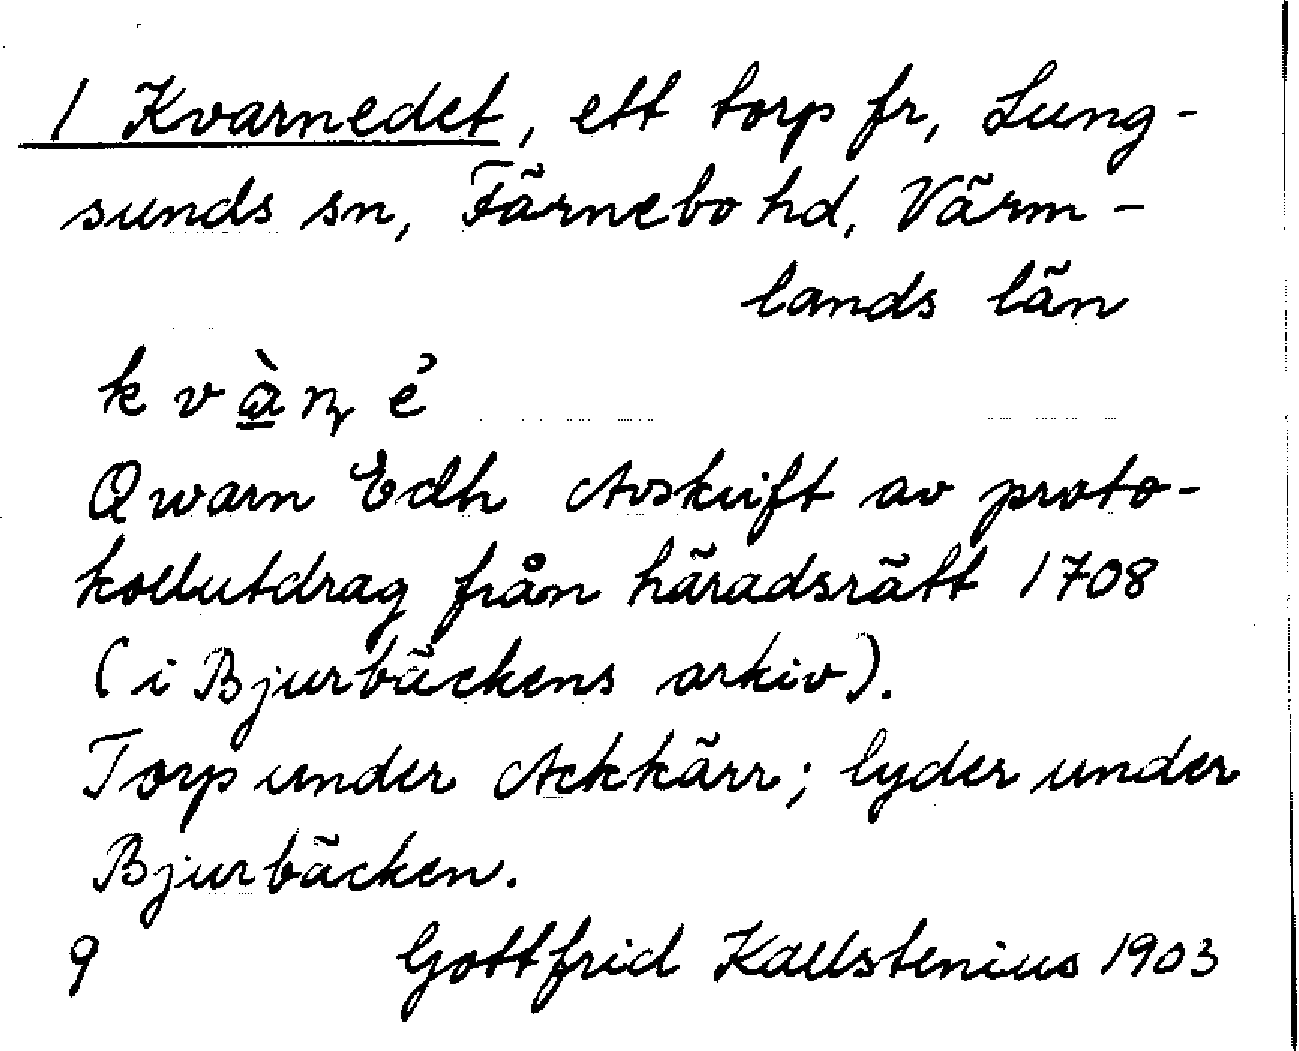 1 Kvarnedet, ett torp fr, Lung-
sunds sn, Färnebo hd, Värm-
lands län
k v à̲ ɳ é
Qwarn Edh Avskrift av proto-
kollutdrag från häradsrätt 1708
(i Bjurbäckens arkiv).
Torp under Ackkärr; lyder under
Bjurbäcken.
9 Gottfrid Kallstenius 1903